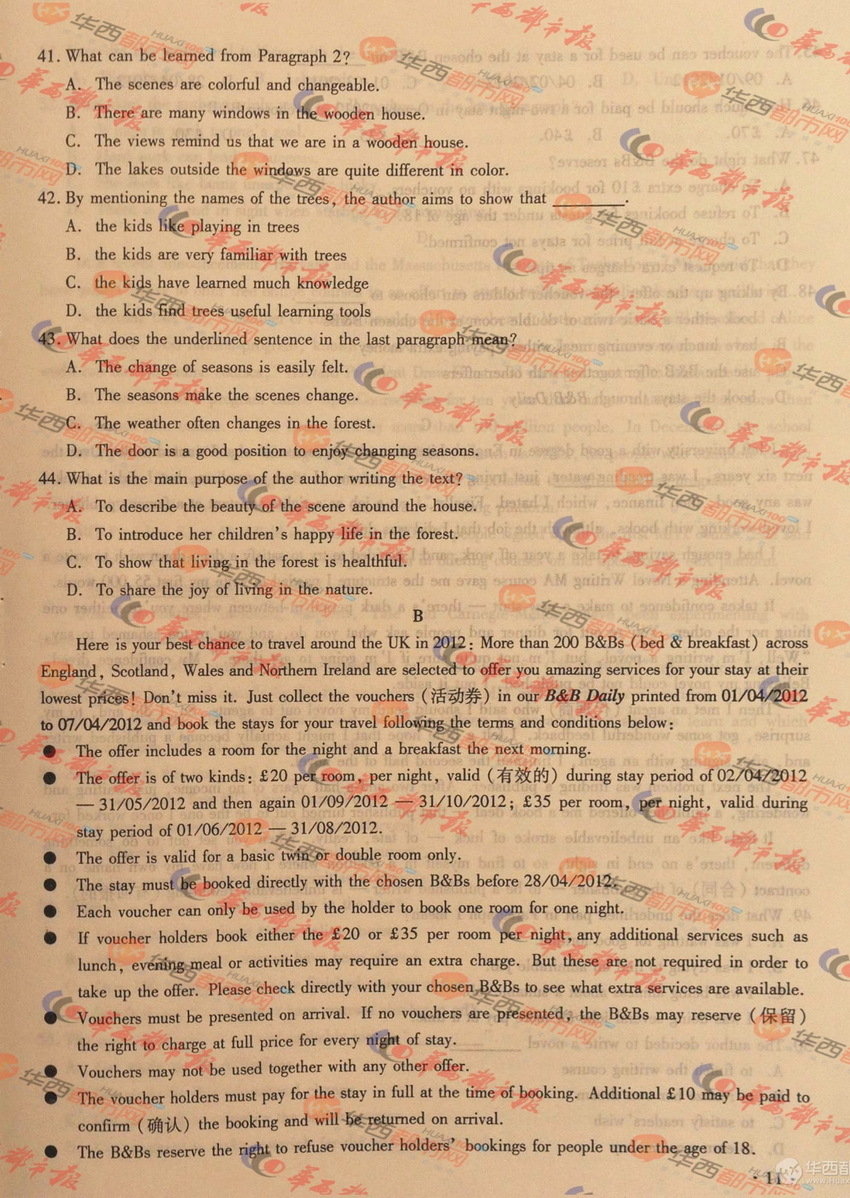 41. What can be learned from Paragraph 2?
A. The scenes are colorful and changeable.
B. There are many windows in the wooden house.
C. The views remind us that we are in a wooden house.
D. The lakes outside the windows are quite different in color.
42. By mentioning the names of the trees, the author aims to show that ________.
A. the kids like playing in trees
B. the kids are very familiar with trees
C. the kids have learned much knowledge
D. the kids find trees useful learning tools
43. What does the underlined sentence in the last paragraph mean?
A. The change of seasons is easily felt.
B. The seasons make the scenes change.
C. The weather often changes in the forest.
D. The door is a good position to enjoy changing seasons.
44. What is the main purpose of the author writing the text?
A. To describe the beauty of the scene around the house.
B. To introduce her children's happy life in the forest.
C. To show that living in the forest is healthful.
D. To share the joy of living in the nature.
B
Here is your best chance to travel around the UK in 2012: More than 200 B&Bs (bed & breakfast) across
England, Scotland, Wales and Northern Ireland are selected to offer you amazing services for your stay at their
lowest prices! Don't miss it. Just collect the vouchers (活动券) in our B&B Daily printed from 01/04/2012
to 07/04/2012 and book the stays for your travel following the terms and conditions below:
● The offer includes a room for the night and a breakfast the next morning.
● The offer is of two kinds: £20 per room, per night, valid (有效的) during stay period of 02/04/2012
— 31/05/2012 and then again 01/09/2012 — 31/10/2012; £35 per room, per night, valid during
stay period of 01/06/2012 — 31/08/2012.
● The offer is valid for a basic twin or double room only.
● The stay must be booked directly with the chosen B&Bs before 28/04/2012.
● Each voucher can only be used by the holder to book one room for one night.
● If voucher holders book either the £20 or £35 per room per night, any additional services such as
lunch, evening meal or activities may require an extra charge. But these are not required in order to
take up the offer. Please check directly with your chosen B&Bs to see what extra services are available.
● Vouchers must be presented on arrival. If no vouchers are presented, the B&Bs may reserve (保留)
the right to charge at full price for every night of stay.
● Vouchers may not be used together with any other offer.
● The voucher holders must pay for the stay in full at the time of booking. Additional £10 may be paid to
confirm (确认) the booking and will be returned on arrival.
● The B&Bs reserve the right to refuse voucher holders' bookings for people under the age of 18.
· 11
华西都市报
华西都市网
HUAXI100